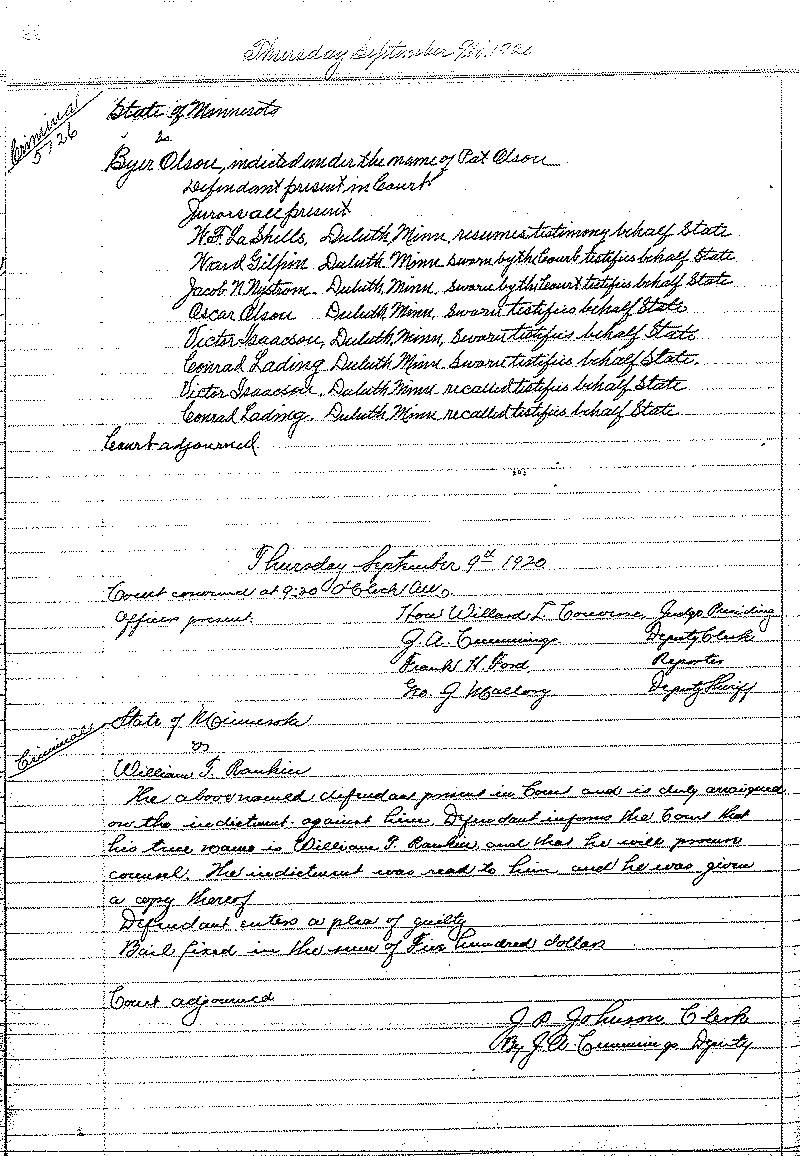 Thursday September 9th 1920
Criminal
5726
State of Minnesota
vs
Byer Olson, indicted under the name of Pat Olson
Defendant present in Court
Jurors all present
W.F. LaShells, Duluth, Minn resumes testimony behalf State
Ward Gilpion Duluth, Minn sworn by the Court testifies behalf State
Jacob N Nystrom. Duluth, Minn, sworn by the Court testifies behalf State
Oscar Olson Duluth, Minn, sworn testifies behalf State
Victor Isaacson, Duluth, Minn, sworn testifies behalf State
Conrad Lading Duluth Minn sworn testifies behalf State
Victor Isaacson. Duluth Minn recalled testifies behalf State
Conrad Lading. Duluth Minn recalled testifies behalf State
Court adjourned
Thursday September 9th 1920
Court convened at 9:30 O'Clock A.M.
Officers present
Hon Willard L Converse, Judge Presiding
J. A. Cummings Deputy Clerk
Frank H. Ford, Reporter
Geo J Mallory Deputy Sheriff
Criminal
State of Minnesota
vs
William T. Rankin
The above named defendant present in Court and is duly arraigned
on the indictment against him. Defendant informs the Court that
his true name is William T. Rankin, and that he will procure
counsel. The indictment was read to him and he was given
a copy thereof
Defendant enters a plea of guilty
Bail fixed in the sum of hundred dollars
Court adjourned
J P Johnson, Clerk
By J. A. Cummings Deputy